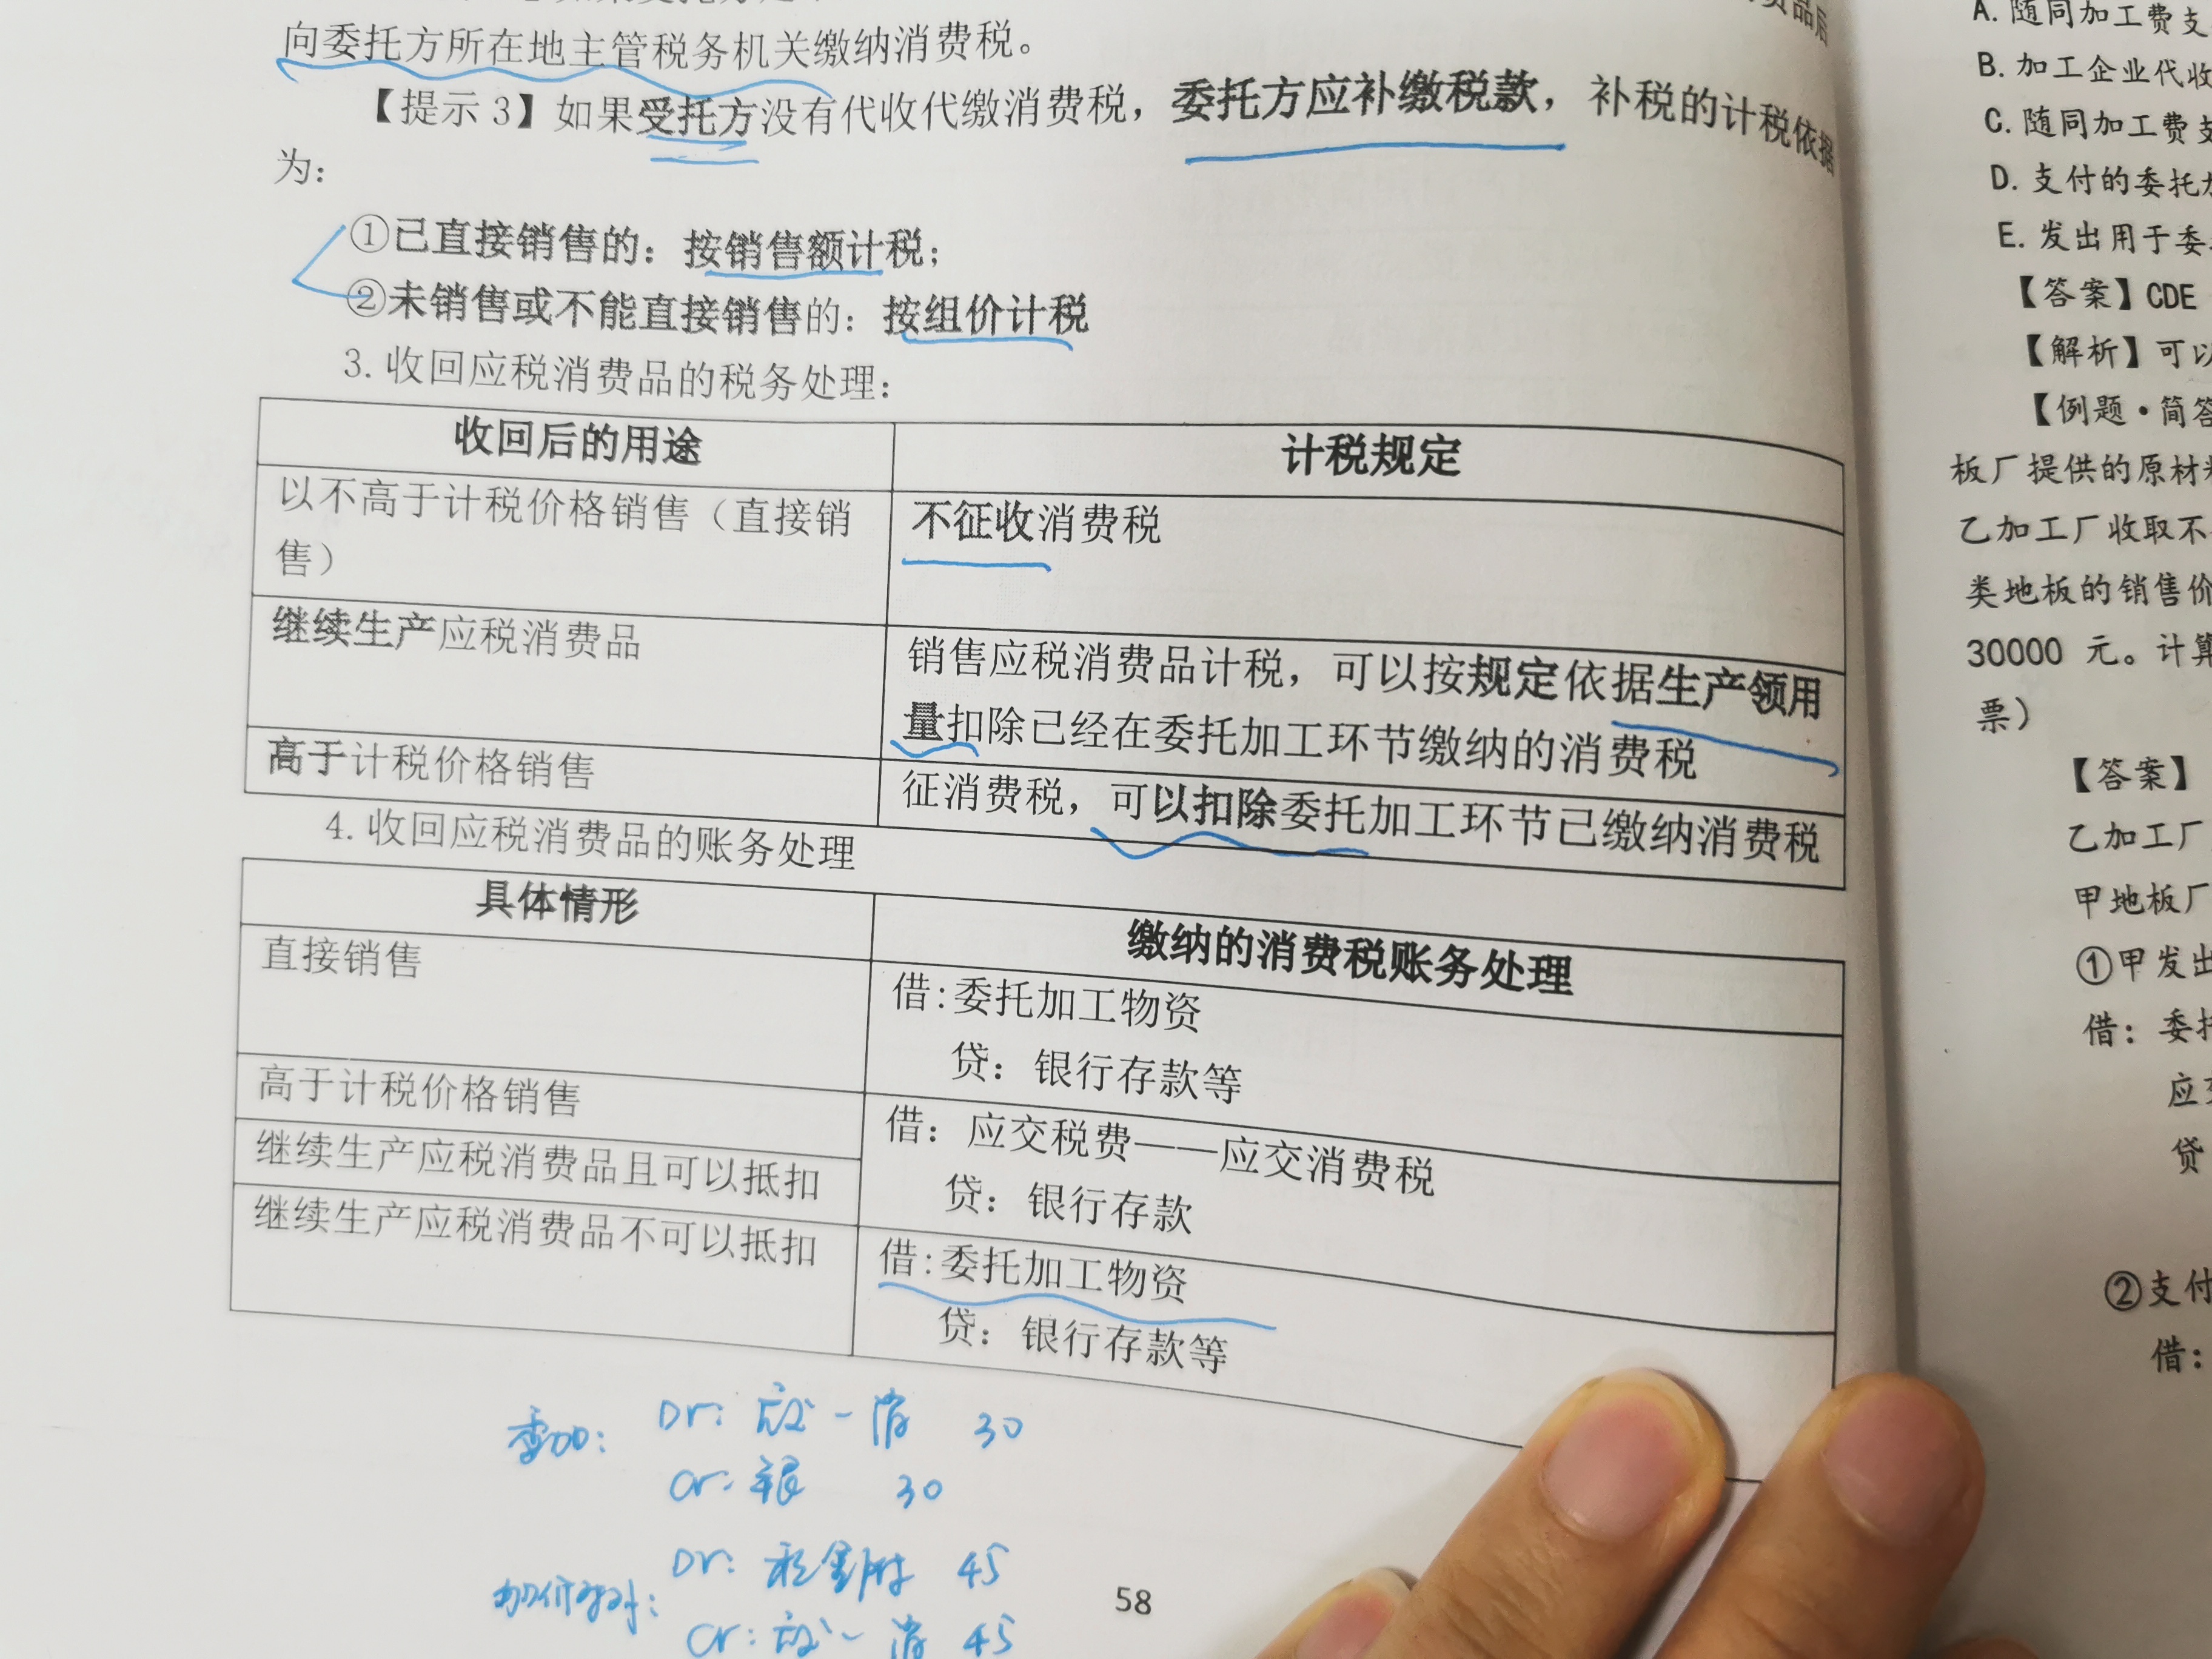 向委托方所在地主管税务机关缴纳消费税。
【提示 3】如果受托方没有代收代缴消费税，委托方应补缴税款，补税的计税依据
为：
①已直接销售的：按销售额计税；
②未销售或不能直接销售的：按组价计税
3. 收回应税消费品的税务处理：
收回后的用途 计税规定
以不高于计税价格销售（直接销
售） 不征收消费税
继续生产应税消费品 销售应税消费品计税，可以按规定依据生产领用
量扣除已经在委托加工环节缴纳的消费税
高于计税价格销售 征消费税，可以扣除委托加工环节已缴纳消费税
4. 收回应税消费品的账务处理
具体情形 缴纳的消费税账务处理
直接销售 借:委托加工物资
贷：银行存款等
高于计税价格销售
继续生产应税消费品且可以抵扣
借：应交税费——应交消费税
贷：银行存款
继续生产应税消费品不可以抵扣 借:委托加工物资
贷：银行存款等
委加： Dr: 应交-消 30
Cr: 银 30
Dr: 税金附 45
Cr: 应交-消 45
58
A. 随同加工费支
B. 加工企业代收
C. 随同加工费支
D. 支付的委托加
E. 发出用于委
【答案】CDE
【解析】可以
【例题·简答
板厂提供的原材料
乙加工厂收取不
类地板的销售价
30000 元。计算
票）
【答案】
乙加工厂
甲地板厂
①甲发出
借：委托
应交
贷
②支付
借：